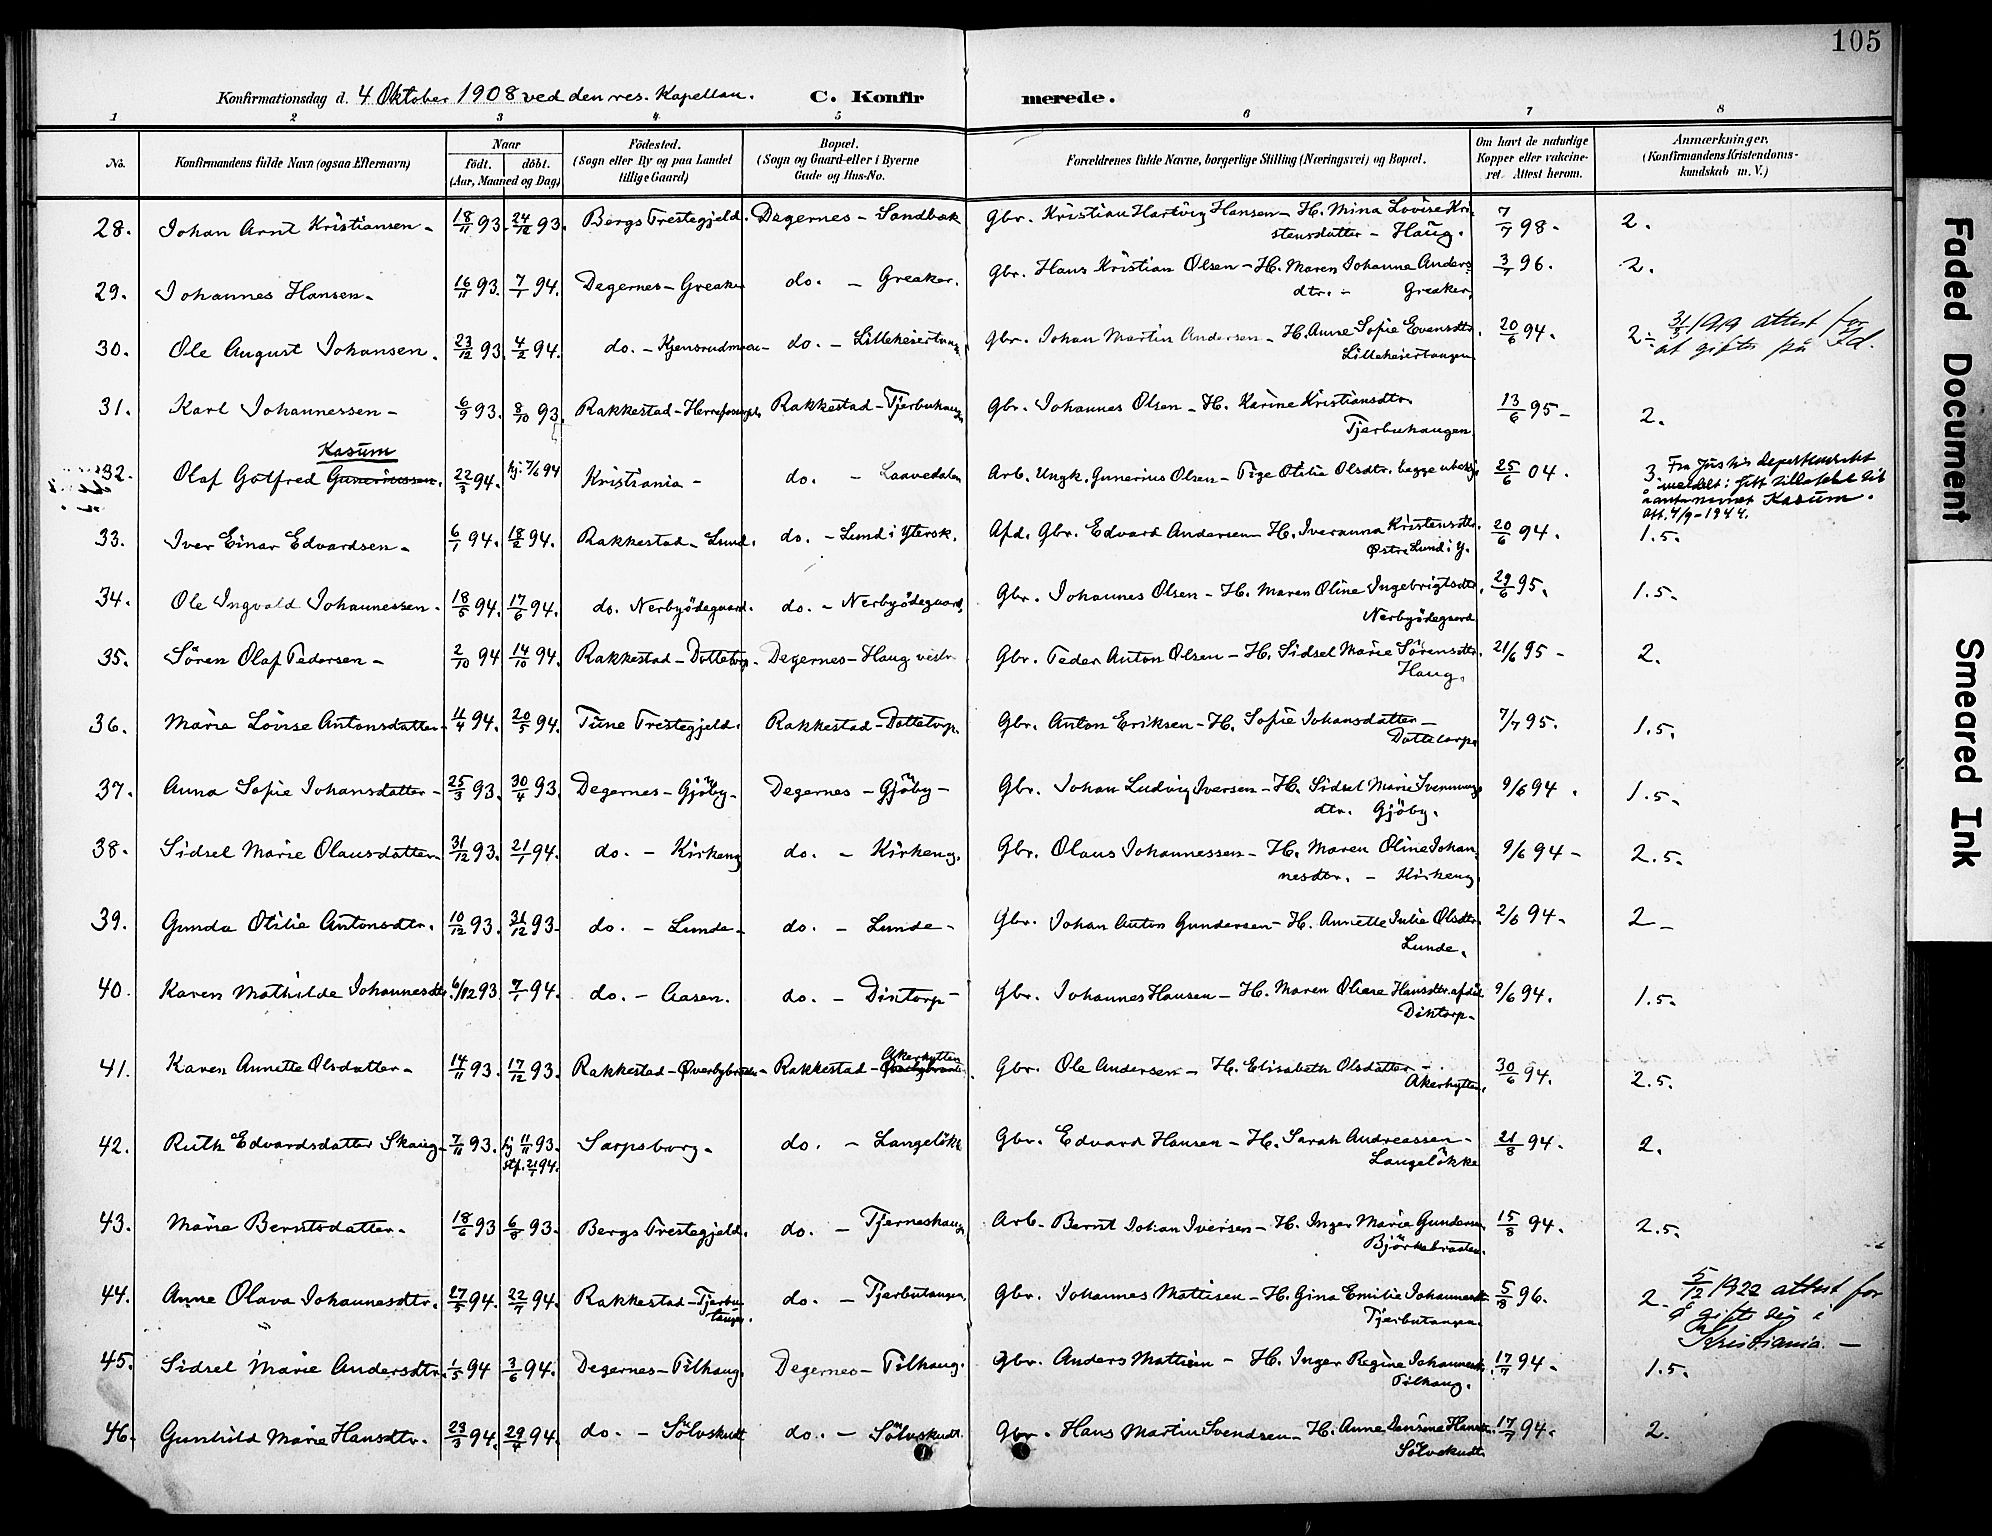 105
Konfirmationsdag d. 4 Oktober 1908 ved den res. Kapellan. C. Konfirmerede.
1 2 3 4 5 6 7 8
No. Konfirmandens fulde Navn (ogsaa Efternavn) Naar födt. döbt. (Aar, Maaned og Dag) Födested. (Sogn eller By og paa Landet tillige Gaard) Bopæl. (Sogn og Gaard eller i Byerne Gade og Hus-No. Forældrenes fulde Navne, borgerlige Stilling (Næringsvei) og Bopæl. Om havt de naturlige Kopper eller vakcineret. Attest herom. Anmærkninger, (Konfirmandens Kristendomskundskab m. V.)
28. Johan Arnt Kristiansen - 18/11 93. 24/12 93. Bergs Prestegjeld. Degernes - Sandbæk Gbr. Kristian Hartvig Hansen - H. Mina Lovise Kri- 7/7 98 - 2.
stensdatter - Haug.
29. Johannes Hansen - 16/11 93. 7/1 94. Degernes - Greaker do. - Greaker. Gbr. Hans Kristian Olsen - H. Maren Johanne Anders 3/7 96. 2.
dtr. - Greaker.
30. Ole August Johansen. 23/12 93. 4/2 94. do. - do. - Gbr. Johan Martin Andersen - H. Anne Sofie Evensdtr. 20/6 94. 2 - 31/3 1919 attest for
Lilleheiertangen at gifte på Id.
31. Karl Johannessen - 6/9 93. 8/10 93. Rakkestad - Rakkestad - Tjerbuhaugen Gbr. Johannes Olsen - H. Karine Kristiansdtr. 13/6 95 - 2.
Tjerbuhaugen
Kasum
32. Olaf Gotfred Guneriussen. 22/3 94. hj. 7/6 94 Kristiania - do. - Laavedalen Arb. Ungk. Gunerius Olsen - Pige Otilie Olsdtr. begge 25/6 04. 3. Fra Justis departementet
meldet: fått tillatelse til
å anta navnet Kasum.
Att. 4/9-1944.
33. Iver Einar Edvardsen - 6/1 94. 18/2 94. Rakkestad - Lund. do. - Lund i Ytersk. Afd. Gbr. Edvard Andersen - H. Iveranna Kristensdtr. 20/6 94. 1.5.
Østre Lund i Y.
34. Ole Ingvald Johannessen - 18/5 94. 17/6 94. do. Nerbyödegaard. do. - Nerbyödegaard. Gbr. Johannes Olsen - H. Maren Oline Ingebrigtsdtr. 29/6 95. 1.5.
Nerbyödegaard
35. Sören Olaf Pedersen - 2/10 94 14/10 94. Rakkestad - Dattetorp. Degernes - Haug vestr. Gbr. Peder Anton Olsen - H. Sidsel Marie Sörensdtr. 21/6 95 - 2.
Haug.
36. Marie Lovise Antonsdatter - 4/4 94. 20/5 94. Tune Prestegjeld. Rakkestad - Dattetorp. Gbr. Anton Eriksen - H. Sofie Johansdatter - 7/7 95. 1.5.
Dattetorp.
37. Anna Sofie Johansdatter - 25/3 93. 30/4 93. Degernes - Gjöby - Degernes - Gjöby - Gbr. Johan Ludvig Iversen - H. Sidsel Marie Svennungs 9/6 94. 1.5.
dtr. Gjöby.
38. Sidsel Marie Olausdatter - 31/12 93. 21/1 94. do. - Kirkeng do. - Kirkeng. Gbr. Olaus Johannessen - H. Maren Oline Johan- 9/6 94 - 2.5.
nesdtr. - Kirkeng.
39. Gunda Otilie Antonsdtr. 10/12 93. 31/12 93. do. - Lunde - do. - Lunde - Gbr. Johan Anton Gundersen - H. Annette Julie Olsdtr. 2/6 94. 2 -
Lunde.
40. Karen Mathilde Johannesdtr. 6/12 93. 7/1 94. do. - Aasen. do. - Dintorp - Gbr. Johannes Hansen - H. Maren Oliane Hansdtr. afdöd 9/6 94. 1.5.
Dintorp -
Akerhytten
41. Karen Annette Olsdatter - 14/11 93. 17/12 93. Rakkestad - Øverbybraaten - Rakkestad - Øverbybraaten Gbr. Ole Andersen - H. Elisabeth Olsdatter - 30/6 94. 2.5.
Akerhytten.
42. Ruth Edvardsdatter Skaug - 7/11 93. hj. 11/11 93. Sarpsborg - do. - Langelökk Gbr. Edvard Hansen - H. Sarah Andreassen - 21/8 94. 2.
stf. 21/1 94. Langelökke
43. Marie Berntsdatter - 18/6 93 6/8 93. Bergs Prestegjeld. do. - Tjerneshaug Arb. Bernt Johan Iversen - H. Inger Marie Gundersen 15/8 94. 2.5.
Björnebraaten.
44. Anne Olava Johannesdtr. 27/5 94. 22/7 94. Rakkestad - Tjerbu- do. - Tjerbutangen. Gbr. Johannes Mattisen - H. Gina Emilie Johannesdtr. 5/8 96. 2 - 5/12 1922 attest for
tangen. Tjerbutangen. å gifte seg i
Kristiania. -
45. Sidsel Marie Andersdtr. 1/5 94 3/6 94. Degernes - Pilhaug. Degernes - Pilhaug. Gbr. Anders Mattisen - H. Inger Regine Johannesdtr. 17/7 94. 1.5.
Pilhaug.
46. Gunhild Marie Hansdtr. 23/3 94. 29/4 94. do. - Sölvskudt do. - Sölvskudt Gbr. Hans Martin Svendsen - H. Anne Hansdtr. 17/7 94. 2.
Sölvskudt
Faded Document
Smeared Ink